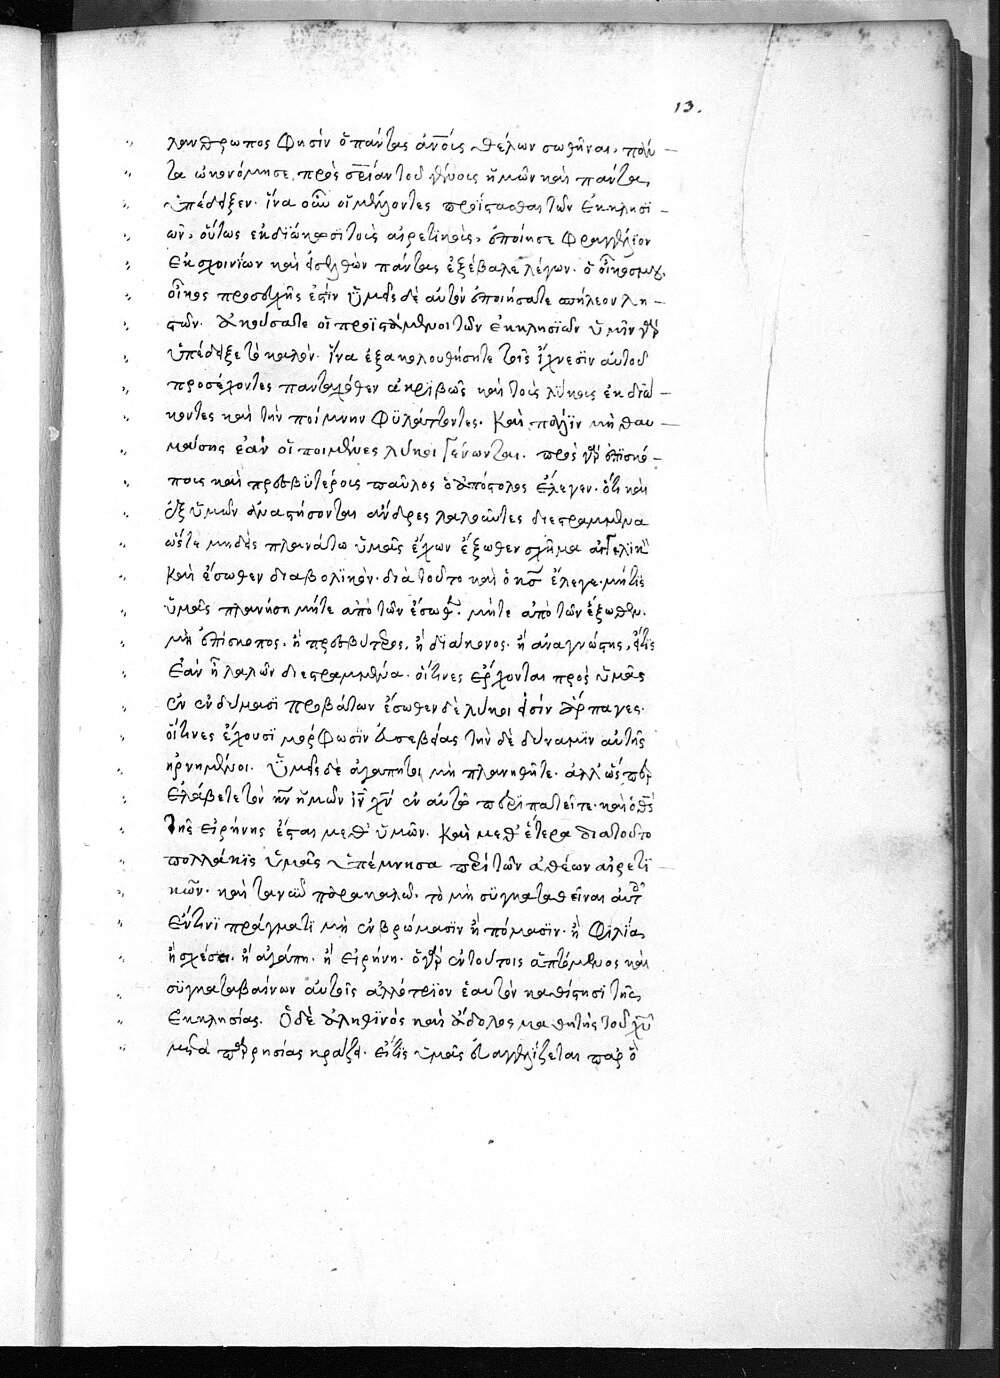 13.
λανθρωπος φησὶν ὁ πάντας ἀνο̅υς θέλων σωθῆναι, πάν
τα ὠκονόμησε πρὸς σρίαν τοῦ γένους ἡμῶν καὶ πάντα
ὑπέδειξεν. ἵνα οὖν οἱ μέλλοντες προΐστασθαι τῶν ἐκκλησϊ
ῶν, οὕτως ἐκδιώκωσϊ τοὺς αἱρετικοὺς, ἐποίησε φραγγέλϊον
ἐκ σχοινίων καὶ εἰσελθὼν πάντας ἐξέβαλε λέγων. ὁ οἶκος μου,
οἶκος προσευχῆς ἐστίν ὑμεῖς δὲ αὐτὸν ἐποιήσατε σπήλεον λη
στῶν. ἀκούσατε οἱ προϊστάμενοι τῶν ἐκκλησϊῶν ὑμῖν γὰρ
ὑπέδειξε τὸ καλόν. ἵνα ἐξακολουθήσητε τοῖς ἴχνεσϊν αὐτοῦ
προσέχοντες πανταχόθεν ἀκρϊβῶς καὶ τοὺς λύκους ἐκδιώ
κοντες καὶ τὴν ποίμνην φϋλάττοντες. Καὶ πάλϊν μὴ θαυ
μάσης ἐὰν οἱ ποιμένες λύκοι γένωνται. πρὸς γὰρ ἐπϊσκό
πους καὶ πρεσβϋτέρους παῦλος ὁ ἀπόστολος ἔλεγεν. ὅτι καὶ
ἐξ ὑμῶν ἀναστήσονται ἄνδρες λαλοῦντες διεστραμμένα
ὥστε μηδεὶς πλανάτω ὑμᾶς ἔχων ἔξωθεν σχῆμα ἀγγελικὸν
καὶ ἔσωθεν διαβολϊκόν. διὰ τοῦτο καὶ ὁ κς̅ ἔλεγε. μή τϊς
ὑμᾶς πλανήση μήτε ἀπὸ τῶν ἔσωθεν. μήτε ἀπὸ τῶν ἔξωθεν.
μὴ ἐπίσκοπος, ἢ πρεσβύτερος, ἢ διάκονος. ἢ ἀναγνώστης, ὅστις
ἐὰν ἦ λαλῶν διεστραμμένα. οἵτινες ἔρχονται πρὸς ὑμᾶς
ἐν ἐνδύμασϊ προβάτων ἔσωθεν δὲ λύκοι εἰσὶν ἅρπαγες.
οἵτινες ἔχουσϊ μόρφωσϊν εὐσεβείας τὴν δὲ δύναμϊν αὐτῆς
ἠρνημένοι. ὑμεῖς δὲ ἀγαπητοὶ μὴ πλανηθῆτε. ἀλλ' ὥσπερ
ἐλάβετε τὸν κν̅ ἡμῶν ιν̅ χν̅ ἐν αὐτῶ περϊπατεῖτε. καὶ ὁ θς̅
τῆς εἰρήνης ἔσται μεθ' ὑμῶν. Καὶ μεθ' ἕτερα διὰ τοῦτο
πολλάκϊς ὑμᾶς ὑπέμνησα περὶ τῶν ἀθέων αἱρετϊ
κῶν. καὶ τανῦν παρακαλῶ. τὸ μὴ σϋγκαταθεῖναι αὐτοῖς
ἔν τινϊ πράγματϊ μὴ ἐν βρώμασϊν ἢ πόμασϊν. ἢ φϊλία
ἢ σχέσει. ἢ ἀγάπη. ἢ εἰρήνη. ὁ γὰρ ἐν τούτοις ἁπτόμενος καὶ
σϋγκαταβαίνων αὐτοῖς ἀλλότρϊον ἑαυτὸν καθίστησϊ τῆς
ἐκκλησίας. Ὁ δὲ ἀληθϊνὸς καὶ ἄδολος μαθητὴς τοῦ χυ̅
μετὰ παρρησίας κράζει. εἴ τϊς ὑμᾶς εὐαγγελίζεται παρ' ὃ